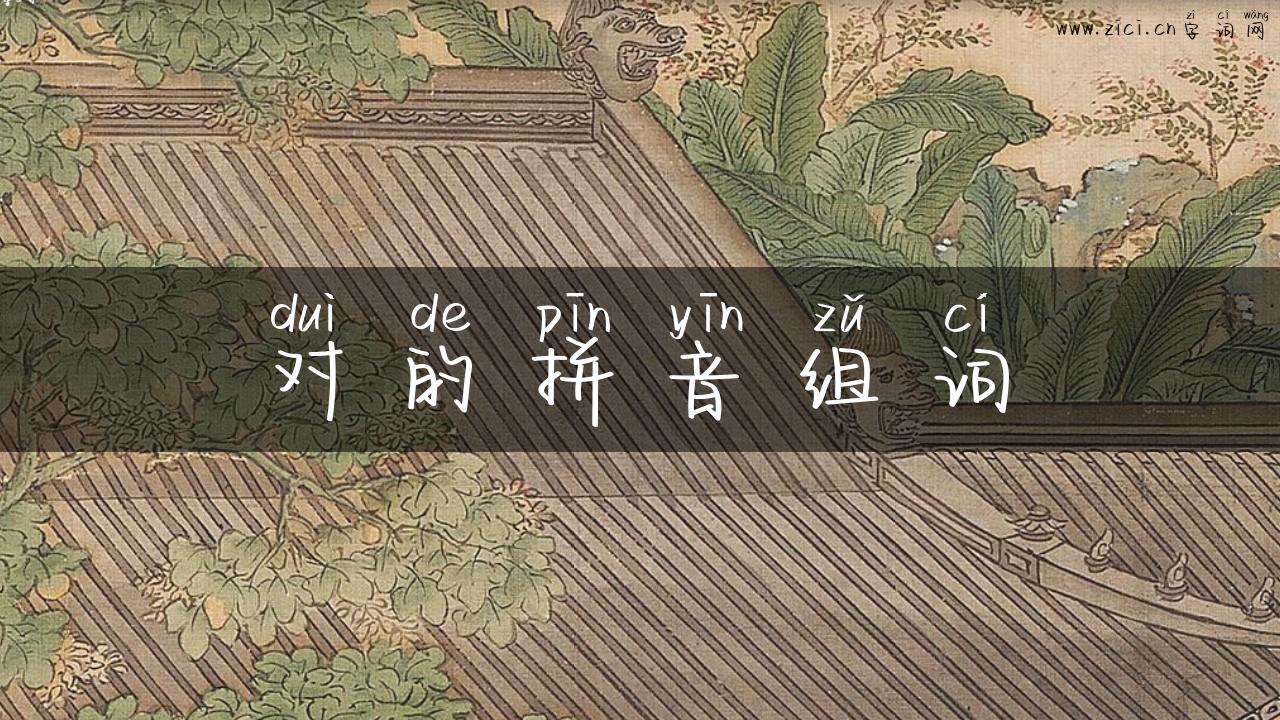 zì cí wǎng
www.zici.cn 字词网
duì de pīn yīn zǔ cí
对的拼音组词